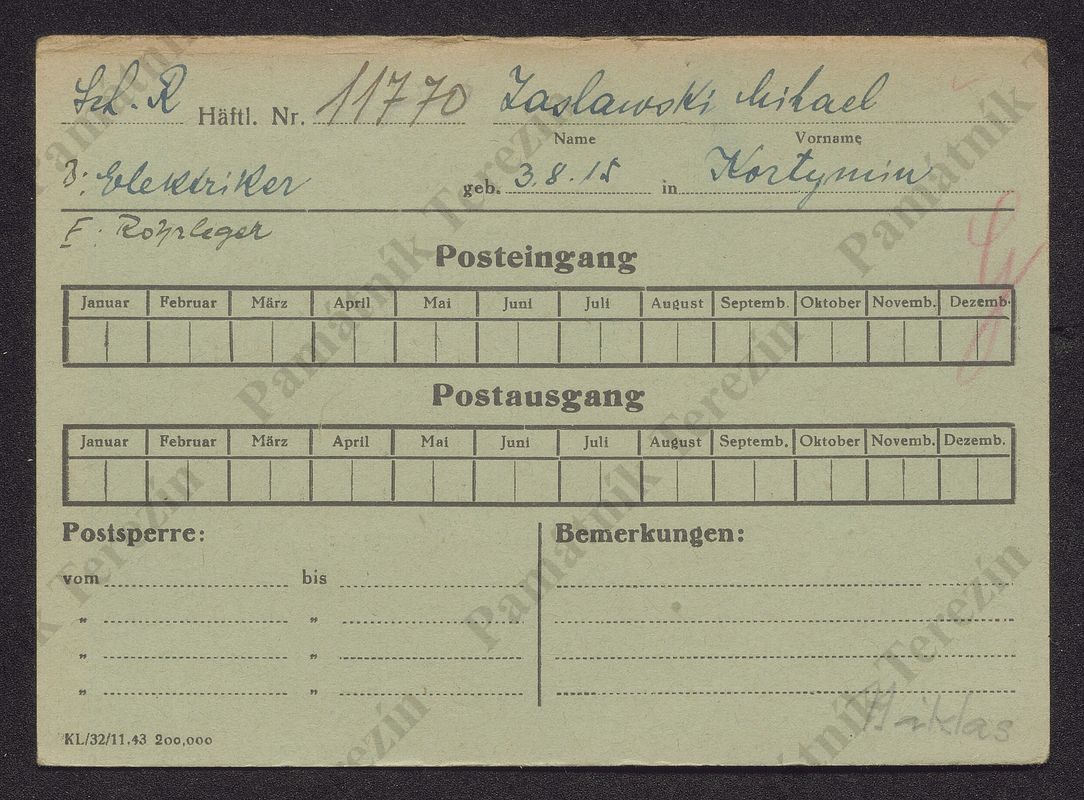 Sch. R Häftl. Nr. 11770 Zaslawski Mihael
Name Vorname
B: Elektriker geb. 3.8.15 in Kortymin
E: Rohrleger
Posteingang
Januar Februar März April Mai Juni Juli August Septemb. Oktober Novemb. Dezemb.
Postausgang
Januar Februar März April Mai Juni Juli August Septemb. Oktober Novemb. Dezemb.
Postsperre: Bemerkungen:
vom bis
„ „
„ „
„ „
Miklas
KL/32/11.43 200,000
Památník Terezín